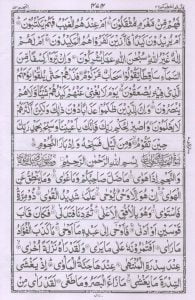 فَهُمْ مِّنْ مَّغْرَمٍ مُّثْقَلُوْنَ اَمْ عِنْدَهُمُ الْغَيْبُ فَهُمْ يَكْتُبُوْنَ
اَمْ يُرِيْدُوْنَ كَيْدًا فَالَّذِيْنَ كَفَرُوْا هُمُ الْمَكِيْدُوْنَ اَمْ لَهُمْ
اِلٰهٌ غَيْرُ اللّٰهِ سُبْحٰنَ اللّٰهِ عَمَّا يُشْرِكُوْنَ وَاِنْ يَّرَوْا كِسْفًا مِّنَ
السَّمَآءِ سَاقِطًا يَّقُوْلُوْا سَحَابٌ مَّرْكُوْمٌ فَذَرْهُمْ حَتّٰى يُلٰقُوْا يَوْمَهُمُ
الَّذِيْ فِيْهِ يُصْعَقُوْنَ يَوْمَ لَا يُغْنِيْ عَنْهُمْ كَيْدُهُمْ شَيْئًا وَّلَا هُمْ
يُنْصَرُوْنَ وَاِنَّ لِلَّذِيْنَ ظَلَمُوْا عَذَابًا دُوْنَ ذٰلِكَ وَلٰكِنَّ اَكْثَرَهُمْ
لَا يَعْلَمُوْنَ وَاصْبِرْ لِحُكْمِ رَبِّكَ فَاِنَّكَ بِاَعْيُنِنَا وَسَبِّحْ بِحَمْدِ رَبِّكَ
حِيْنَ تَقُوْمُ وَمِنَ الَّيْلِ فَسَبِّحْهُ وَاِدْبَارَ النُّجُوْمِ
بِسْمِ اللّٰهِ الرَّحْمٰنِ الرَّحِيْمِ
وَالنَّجْمِ اِذَا هَوٰى مَا ضَلَّ صَاحِبُكُمْ وَمَا غَوٰى وَمَا يَنْطِقُ عَنِ
الْهَوٰى اِنْ هُوَ اِلَّا وَحْيٌ يُّوْحٰى عَلَّمَهٗ شَدِيْدُ الْقُوٰى ذُوْ مِرَّةٍ
فَاسْتَوٰى وَهُوَ بِالْاُفُقِ الْاَعْلٰى ثُمَّ دَنَا فَتَدَلّٰى فَكَانَ قَابَ
قَوْسَيْنِ اَوْ اَدْنٰى فَاَوْحٰى اِلٰى عَبْدِهٖ مَا اَوْحٰى مَا كَذَبَ الْفُؤَادُ
مَا رَاٰى اَفَتُمٰرُوْنَهٗ عَلٰى مَا يَرٰى وَلَقَدْ رَاٰهُ نَزْلَةً اُخْرٰى
عِنْدَ سِدْرَةِ الْمُنْتَهٰى عِنْدَهَا جَنَّةُ الْمَاْوٰى اِذْ يَغْشَى
السِّدْرَةَ مَا يَغْشٰى مَا زَاغَ الْبَصَرُ وَمَا طَغٰى لَقَدْ رَاٰى مِنْ